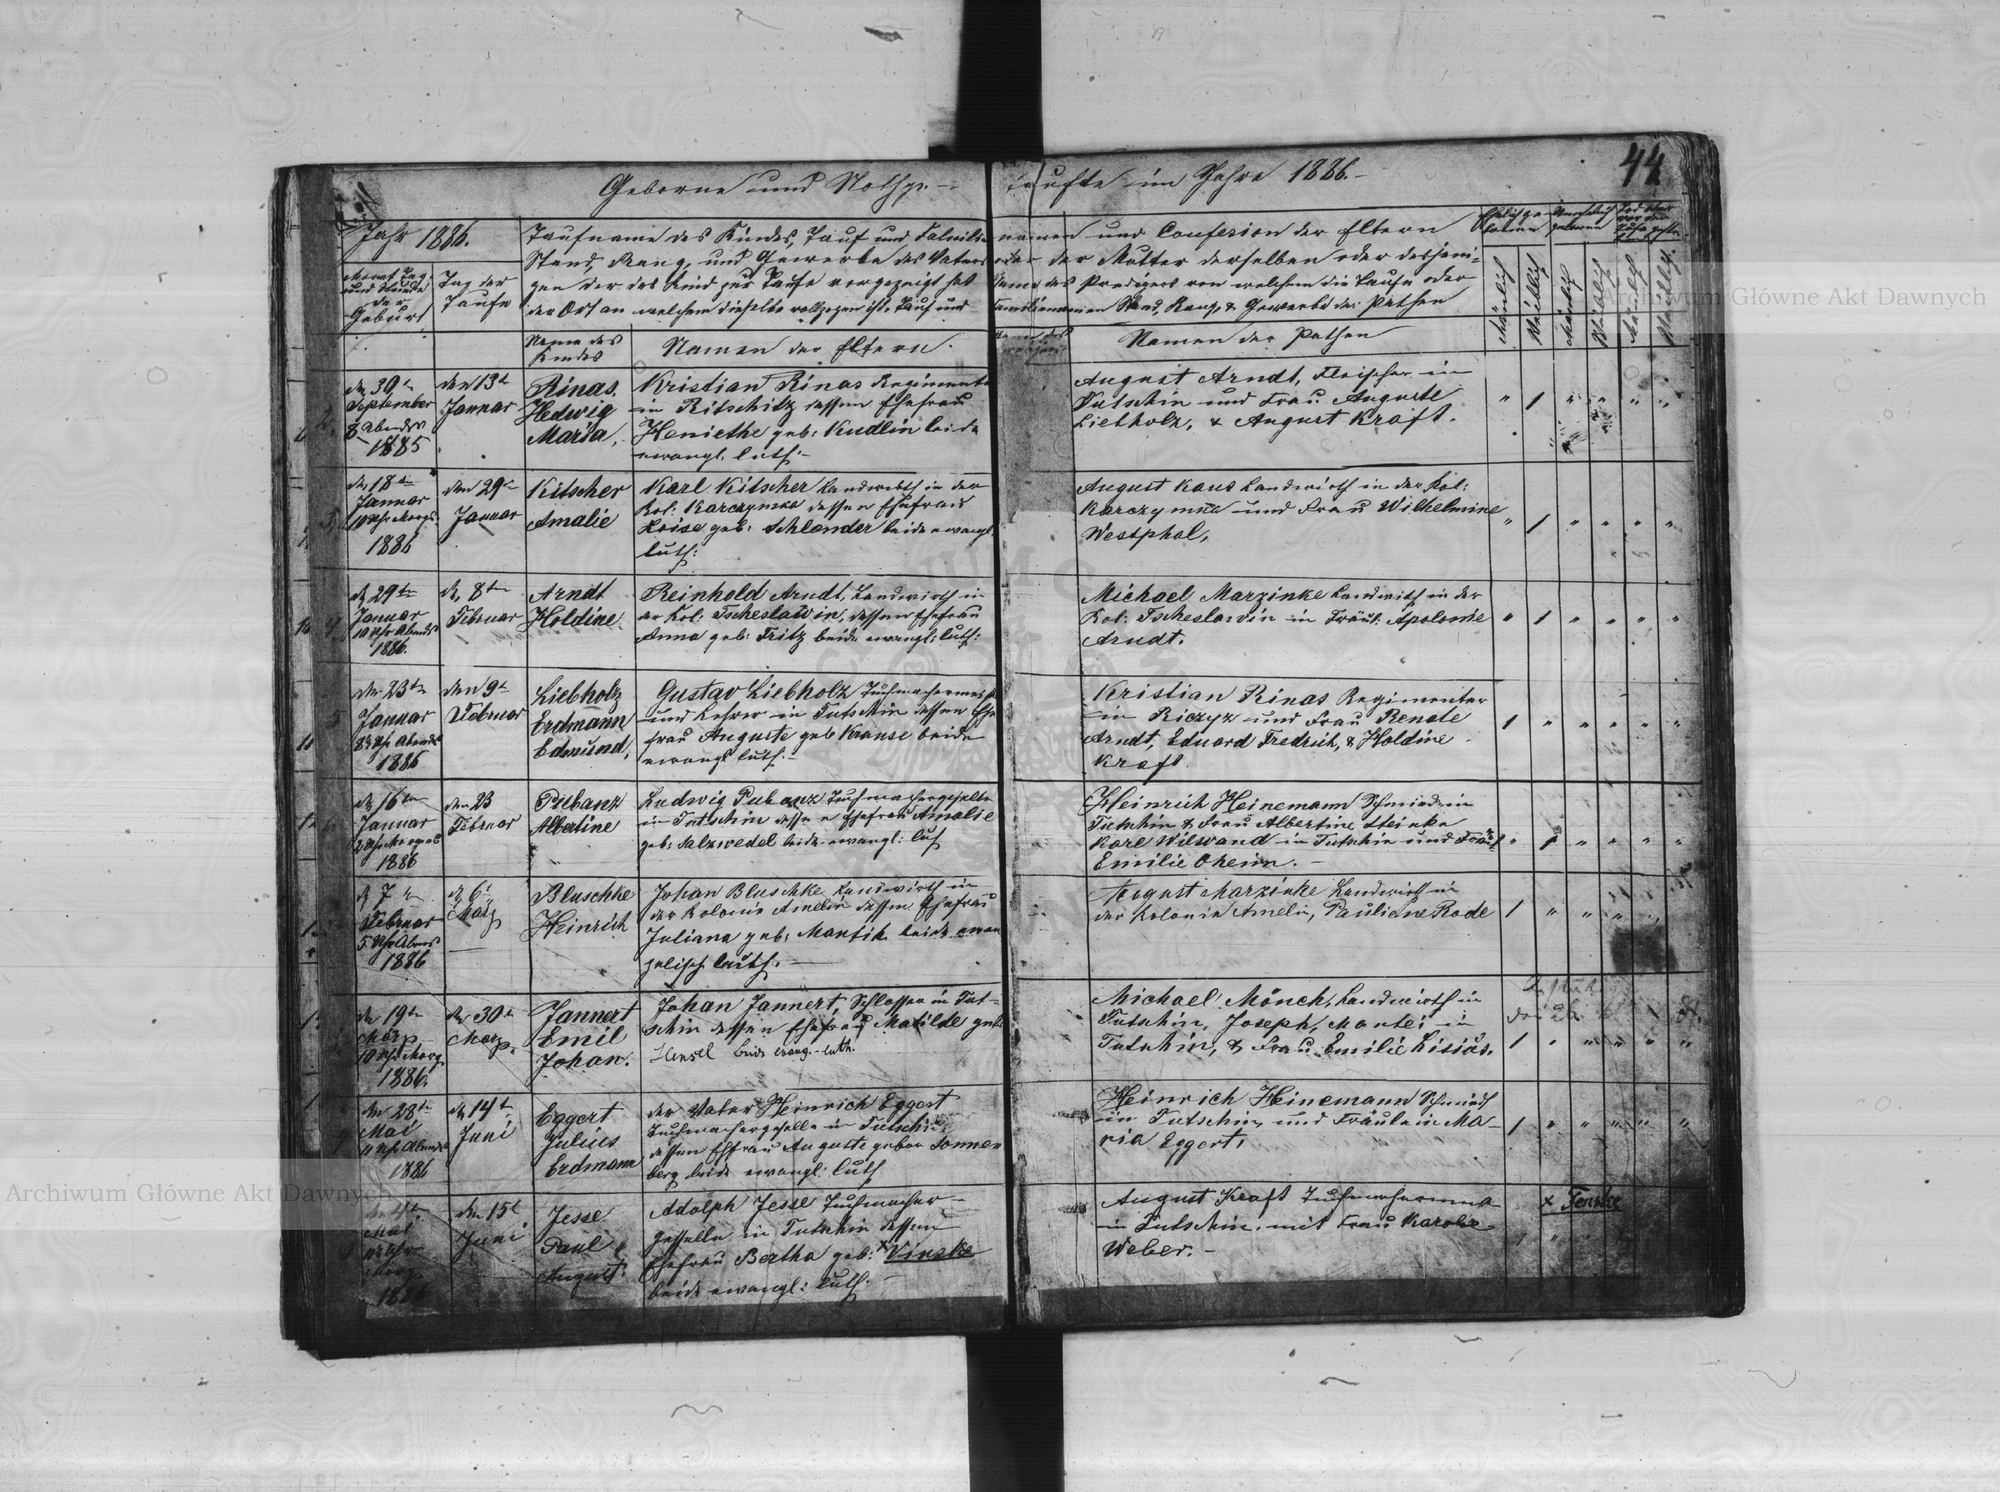 Geborne und Nothge-
taufte im Jahre 1886.
44
Jahr 1886.
Taufname des Kindes, Tauf und Familien
namen und Confesion der Eltern
Stand, Rang, und Gewerbe des Vaters
oder der Mutter derselben oder desjeni-
gen der das Kind zur Taufe vorgezeigt hat
Name des Predigers von welchem die Taufe oder
der Ort an welchem dieselbe vollzogen ist, Tauf und
Familiennamen Stand, Rang, & Gewerbe der Pathen
Monat Tag
und Stunde
der
Geburt
Tag der
Taufe
Name des
Kindes
Namen der Eltern.
Namen der Pathen
Mänlich
Weiblich
Mänlich
Weiblich
Mänlich
Weiblich
2.
den 30ten
September
8 Abends
1885
den 13ten
Januar
Rinas.
Hedwig
Maria,
Kristian Rinas Regimenter
in Ritschitz dessen Ehefrau
Heniethe geb: Kudlin beide
ewangl. luth:
August Arndt, Fleischer in
Tutschin und Frau Auguste
Liebholz, & August Kraft.
3.
den 18ten
Januar
10 Uhr Morgs.
1886
den 29ten
Januar
Kitscher
Amalie
Karl Kitscher Landwirth in der
Kol: Karczymka dessen Ehefrau
Loise geb: Schlender beide ewangl
luth:
August Kaus Landwirth in der Kol:
Karczymka und Frau Wilhelmine
Westphal,
4.
d. 29ten
Januar
10 Uhr Abends
1886.
d. 8ten
Februar
Arndt
Holdine
Reinhold Arndt, Landwirth in
der Kol: Tscheslawin, dessen Ehefrau
Anna geb: Fritz beide ewangl: luth:
Michael Marzinke Landwirth in der
Kol: Tscheslawin in Fräul: Apolonie
Arndt.
5
den 23ten
Januar
8½ Uhr Abends
1886
den 9ten
Februar
Liebholz
Erdmann
Edmund,
Gustav Liebholz Tuchmachermeist
und Lehrer in Tutschin dessen Ehe
frau Auguste geb Krause beide
ewangl luth.-
Kristian Rinas Regimenter
in Riczyz und Frau Renate
Arndt, Eduard Fredrich, & Holdine
Kraft.
d. 16ten
Januar
2 Uhr Morgens
1886
den 23
Februar
Pubanz
Albertine
Ludwig Pubanz Tuchmachergeselle
in Tutschin dessen Ehefrau Amalie
geb: Salzwedel beide ewangl: luth
Heinrich Heinemann Schmied in
Tutschin & Frau Albertine Steinke
Karl Wilswand in Tutschin und Fräul
Emilie Oheim.-
d. 7ten
Februar
5 Uhr Abends
1886
d. 6t
März
Bluschke
Heinrich
Johan Bluschke Landwirth in
der Kolonie Amelin dessen Ehefrau
Juliana geb: Manthik beide ewan
gelisch luth:-
August Marzinke Landwirth in
der Kolonie Amelin, Pauliene Rode
den 19ten
März
10 Uhr Morg
1886.
den 30ten
März.
Jannert
Emil
Johan.
Johan Jannert, Schlosser in Tut-
schin dessen Ehefrau Matilde geb:
Hensel beide ewang.-luth.
Michael Mönch, Landwirth in
Tutschin, Joseph, Mantei in
Tutschin, & Frau Emilie Lisiäs.
9
den 28ten
Mai
11 Uhr Abends
1886
d. 14t
Juni
Eggert
Julius
Erdmann
der Vater Heinrich Eggert
Tuchmachergeselle in Tutschin
dessen Ehfrau Auguste gebor Sonnen
berg beide ewangl: luth
Heinrich Heinemann Schmidt
in Tutschin, und Fräulein Ma-
ria Eggert,
den 4ten
Mai
Morg.
1886
den 15t
Juni
Jesse
Paul
August.
Adolph Jesse Tuchmacher-
geselle in Tutschin dessen
Ehefrau Bertha geb: x Vinske
beide ewangl: luth.
August Kraft Tuchmacher
in Tutschin. mit Frau Karolie
Weber.-
x Fenske
Archiwum Główne Akt Dawnych
Archiwum Główne Akt Dawnych